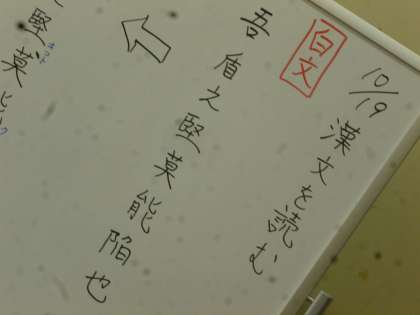 10/19
漢文を読む
白文
吾盾之堅莫能陥也
堅莫